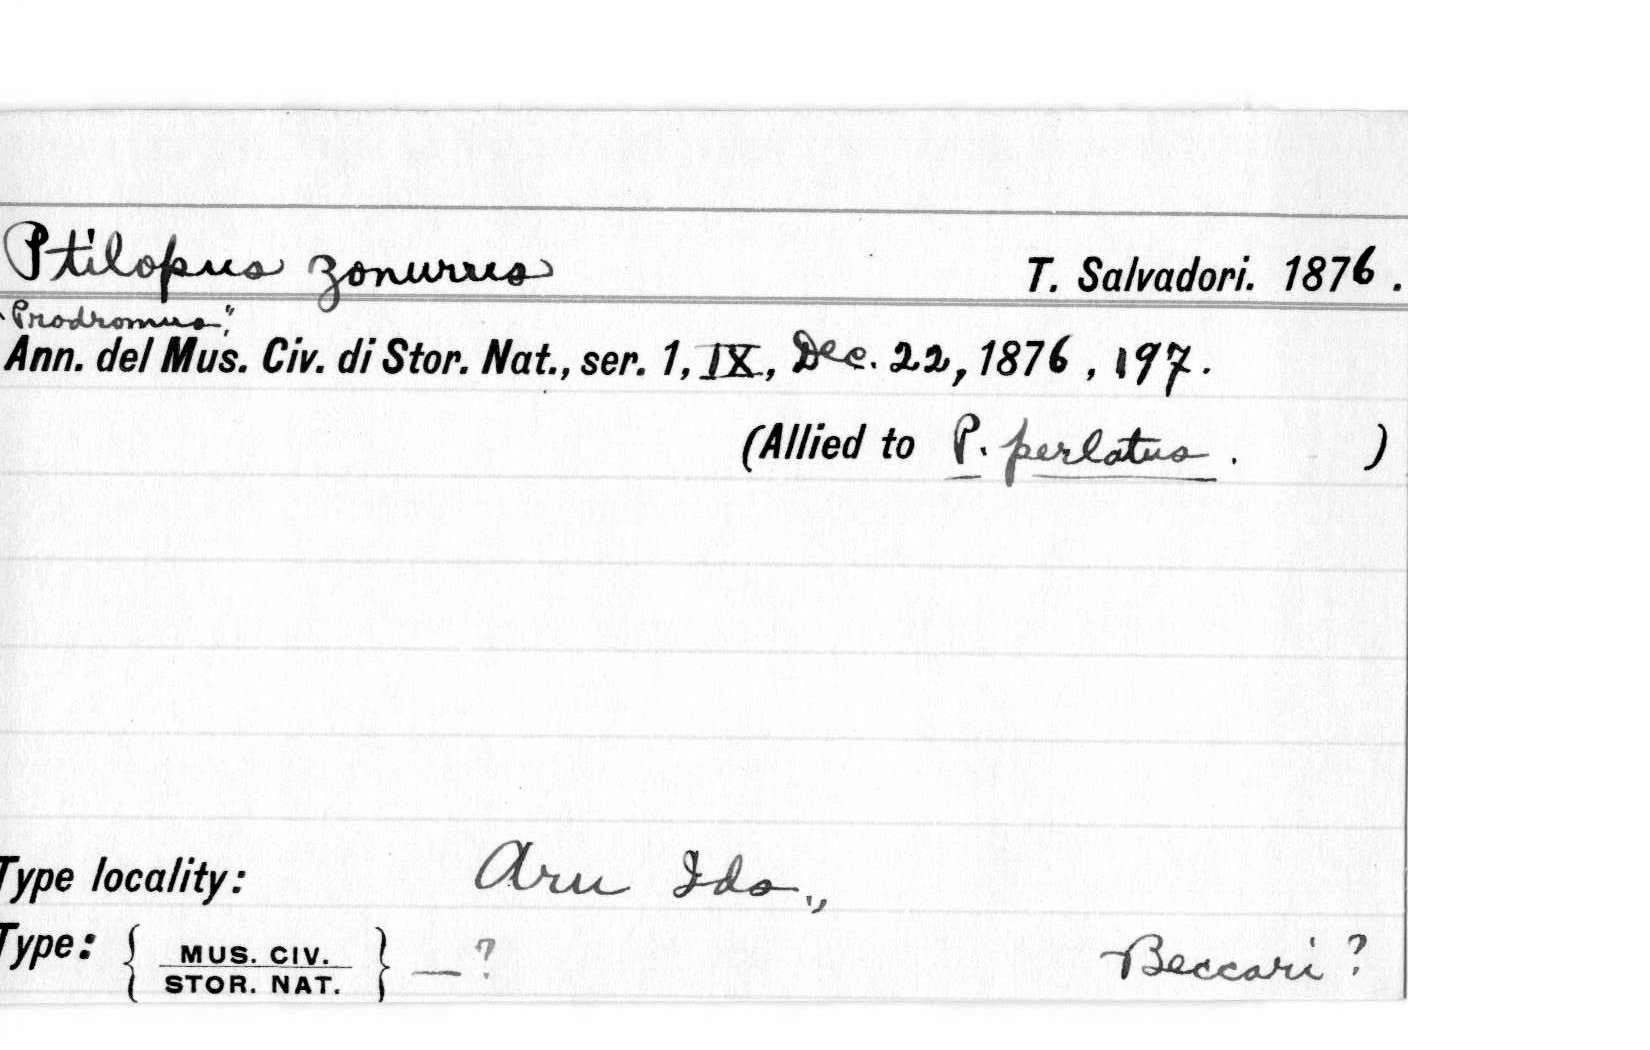 Ptilopus zonurus T. Salvadori. 1876.
"Prodromus",
Ann. del Mus. Civ. di Stor. Nat., ser. 1, IX, Dec. 22, 1876, 197.
(Allied to P. perlatus. )
Type locality: Aru Ids.,
Type: { MUS. CIV. STOR. NAT. } — ? Beccari ?